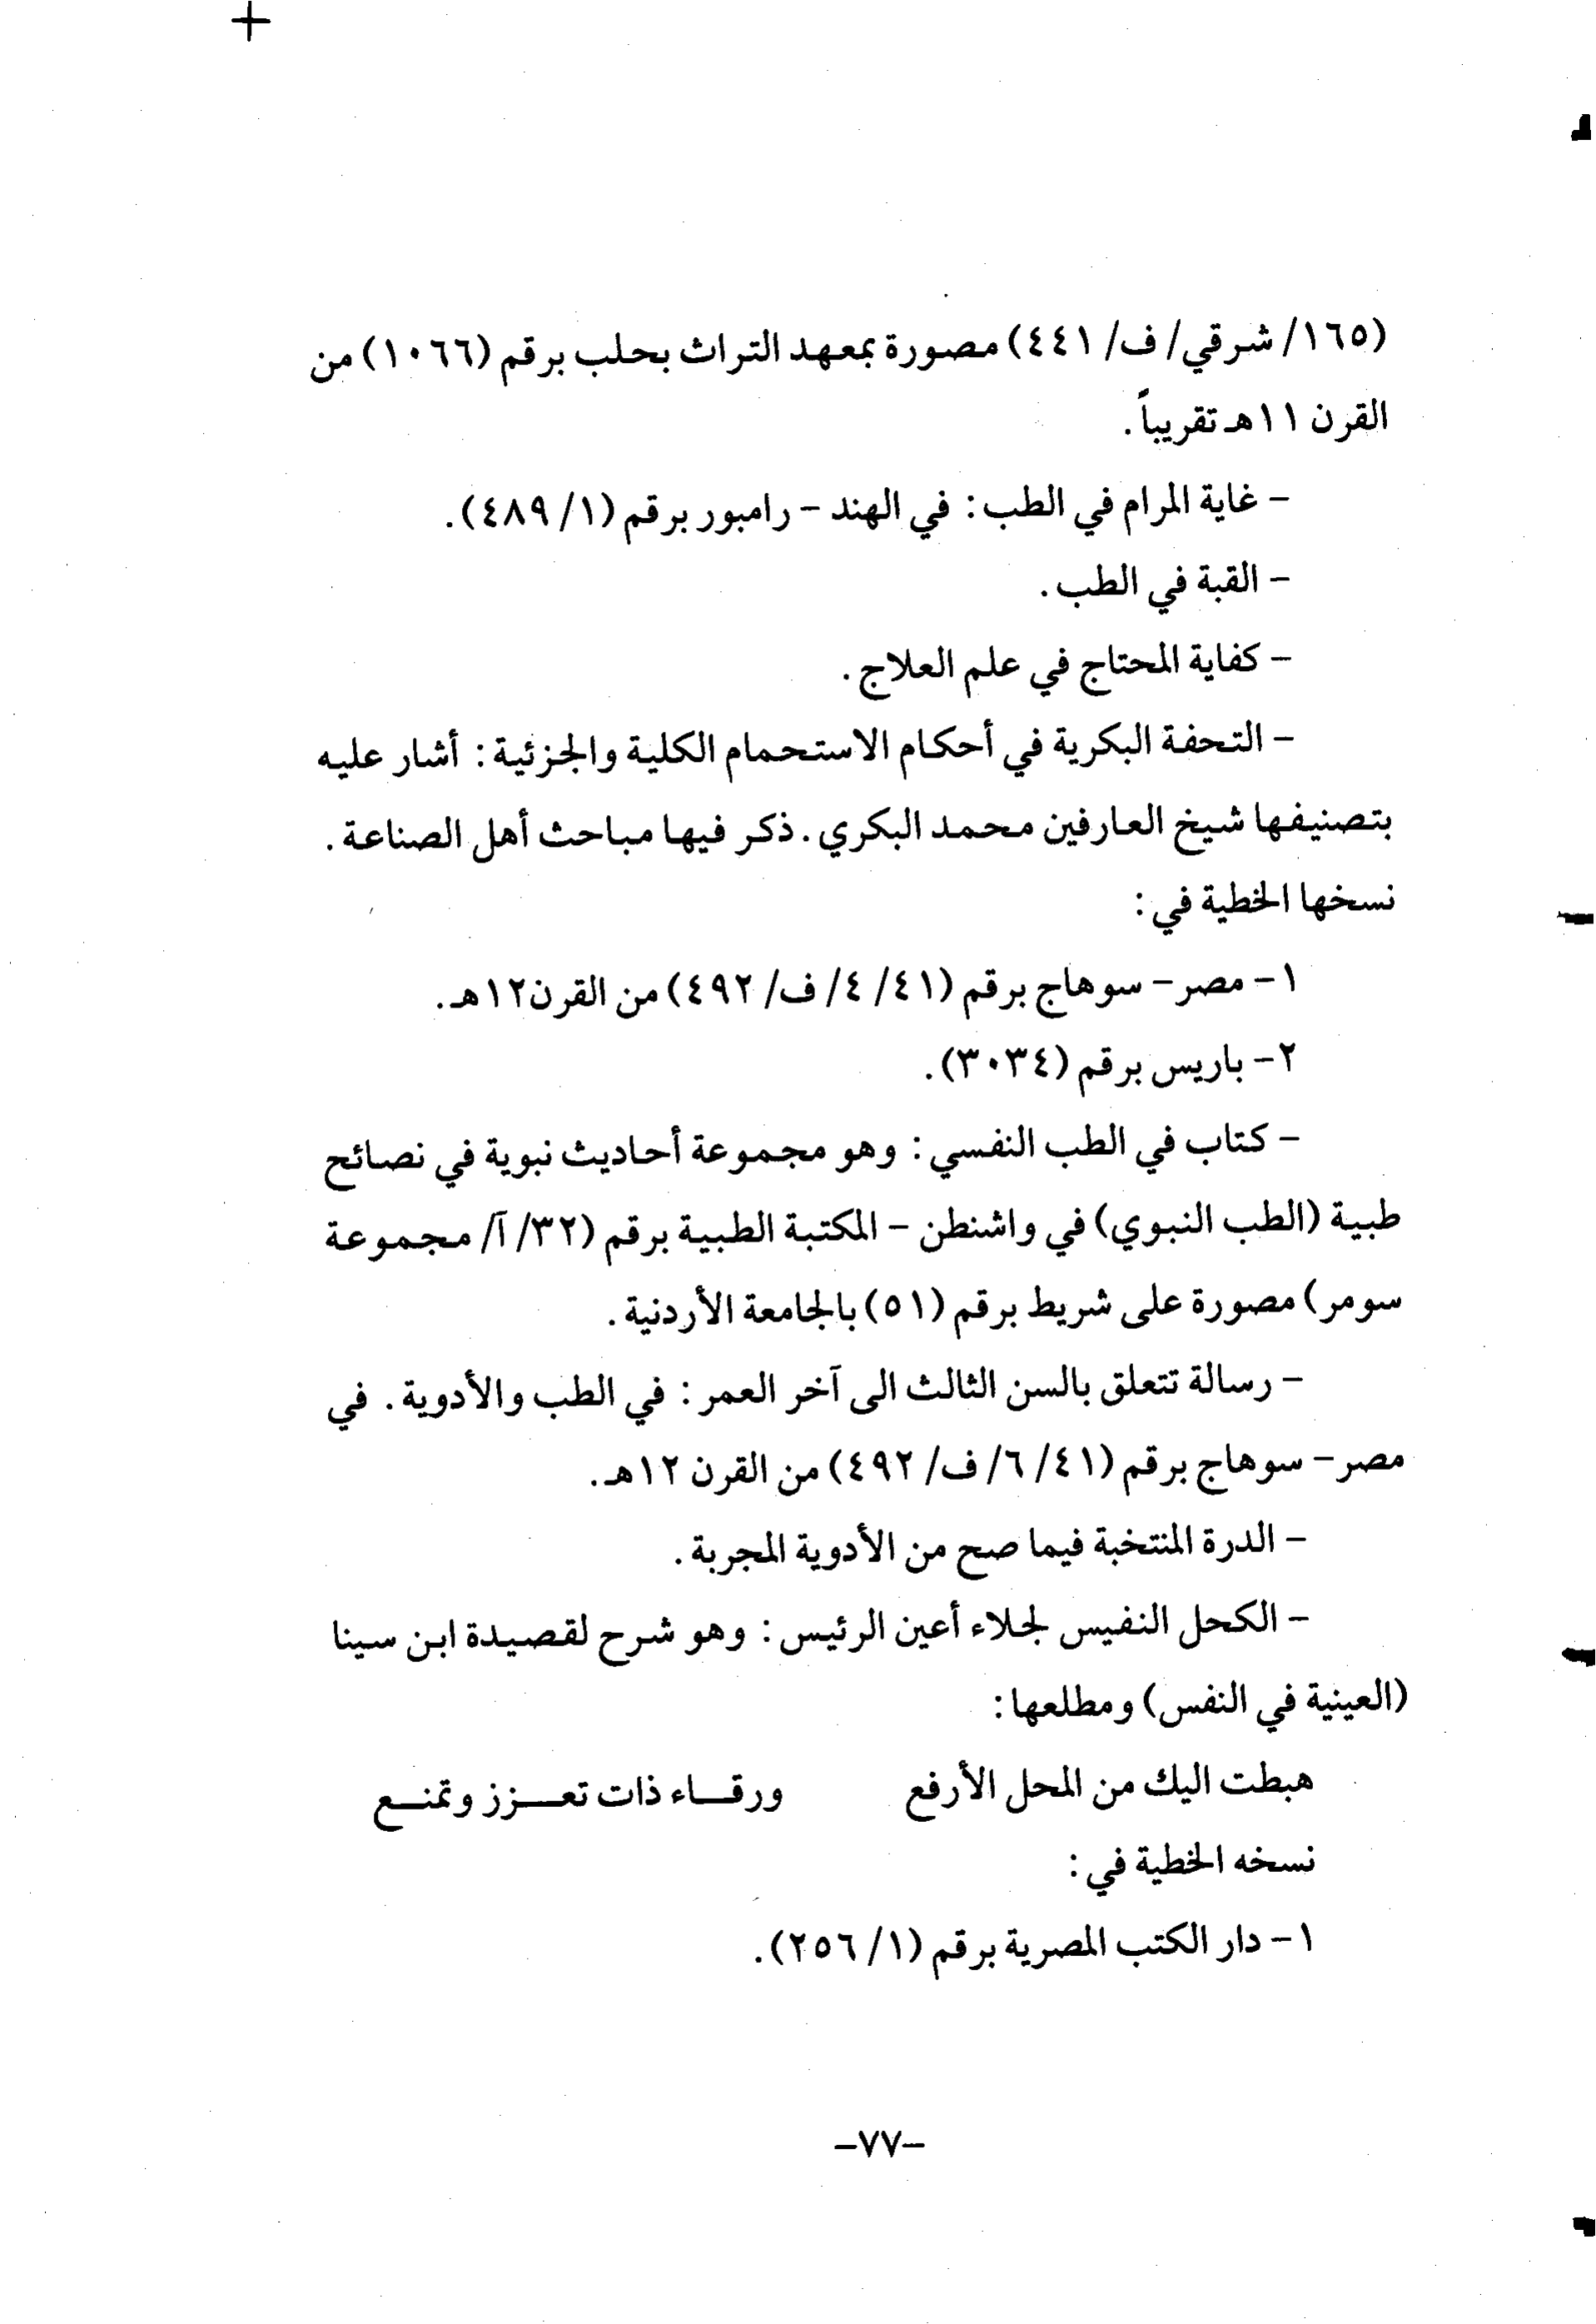 (١٦٥/ شرقي/ ف/ ٤٤١) مصورة بمعهد التراث بحلب برقم (١٠٦٦) من
القرن ١١هـ تقريباً.
- غاية المرام في الطب: في الهند - رامبور برقم (١/ ٤٨٩).
- القبة في الطب.
- كفاية المحتاج في علم العلاج.
- التحفة البكرية في أحكام الاستحمام الكلية والجزئية: أشار عليه
بتصنيفها شيخ العارفين محمد البكري. ذكر فيها مباحث أهل الصناعة.
نسخها الخطية في:
١- مصر- سوهاج برقم (٤١/ ٤/ ف/ ٤٩٢) من القرن١٢هـ.
٢- باريس برقم (٣٠٣٤).
- كتاب في الطب النفسي: وهو مجموعة أحاديث نبوية في نصائح
طبية (الطب النبوي) في واشنطن - المكتبة الطبية برقم (٣٢/ آ/ مجموعة
سومر) مصورة على شريط برقم (٥١) بالجامعة الأردنية.
- رسالة تتعلق بالسن الثالث الى آخر العمر: في الطب والأدوية. في
مصر- سوهاج برقم (٤١/ ٦/ ف/ ٤٩٢) من القرن ١٢هـ.
- الدرة المنتخبة فيما صح من الأدوية المجربة.
- الكحل النفيس لجلاء أعين الرئيس: وهو شرح لقصيدة ابن سينا
(العينية في النفس) ومطلعها:
هبطت اليك من المحل الأرفع ورقــاء ذات تعــزز وتمنــع
نسخه الخطية في:
١- دار الكتب المصرية برقم (١/ ٢٥٦).
-٧٧-